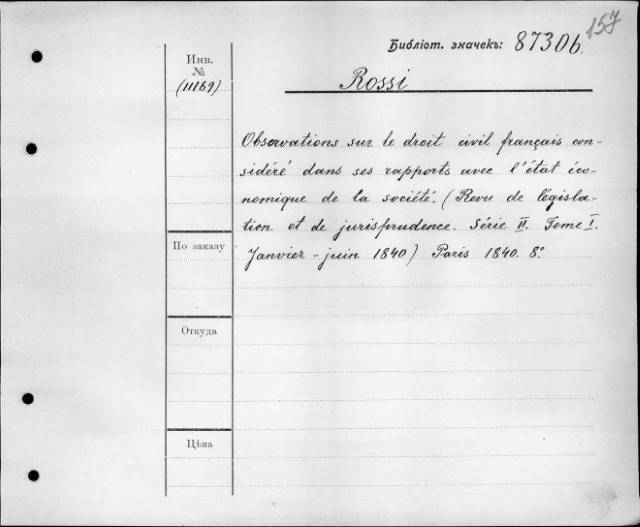 157
Библіот. значекъ: 8730b.
Инв.
№
(11169)
Rossi
Observations sur le droit civil français con-
sidéré dans ses rapports avec l'état éco-
nomique de la société. (Revu de législa-
tion et de jurisprudence. Série II. Tome I.
Janvier - juin 1840) Paris 1840. 8°.
По заказу
Откуда
Цѣна